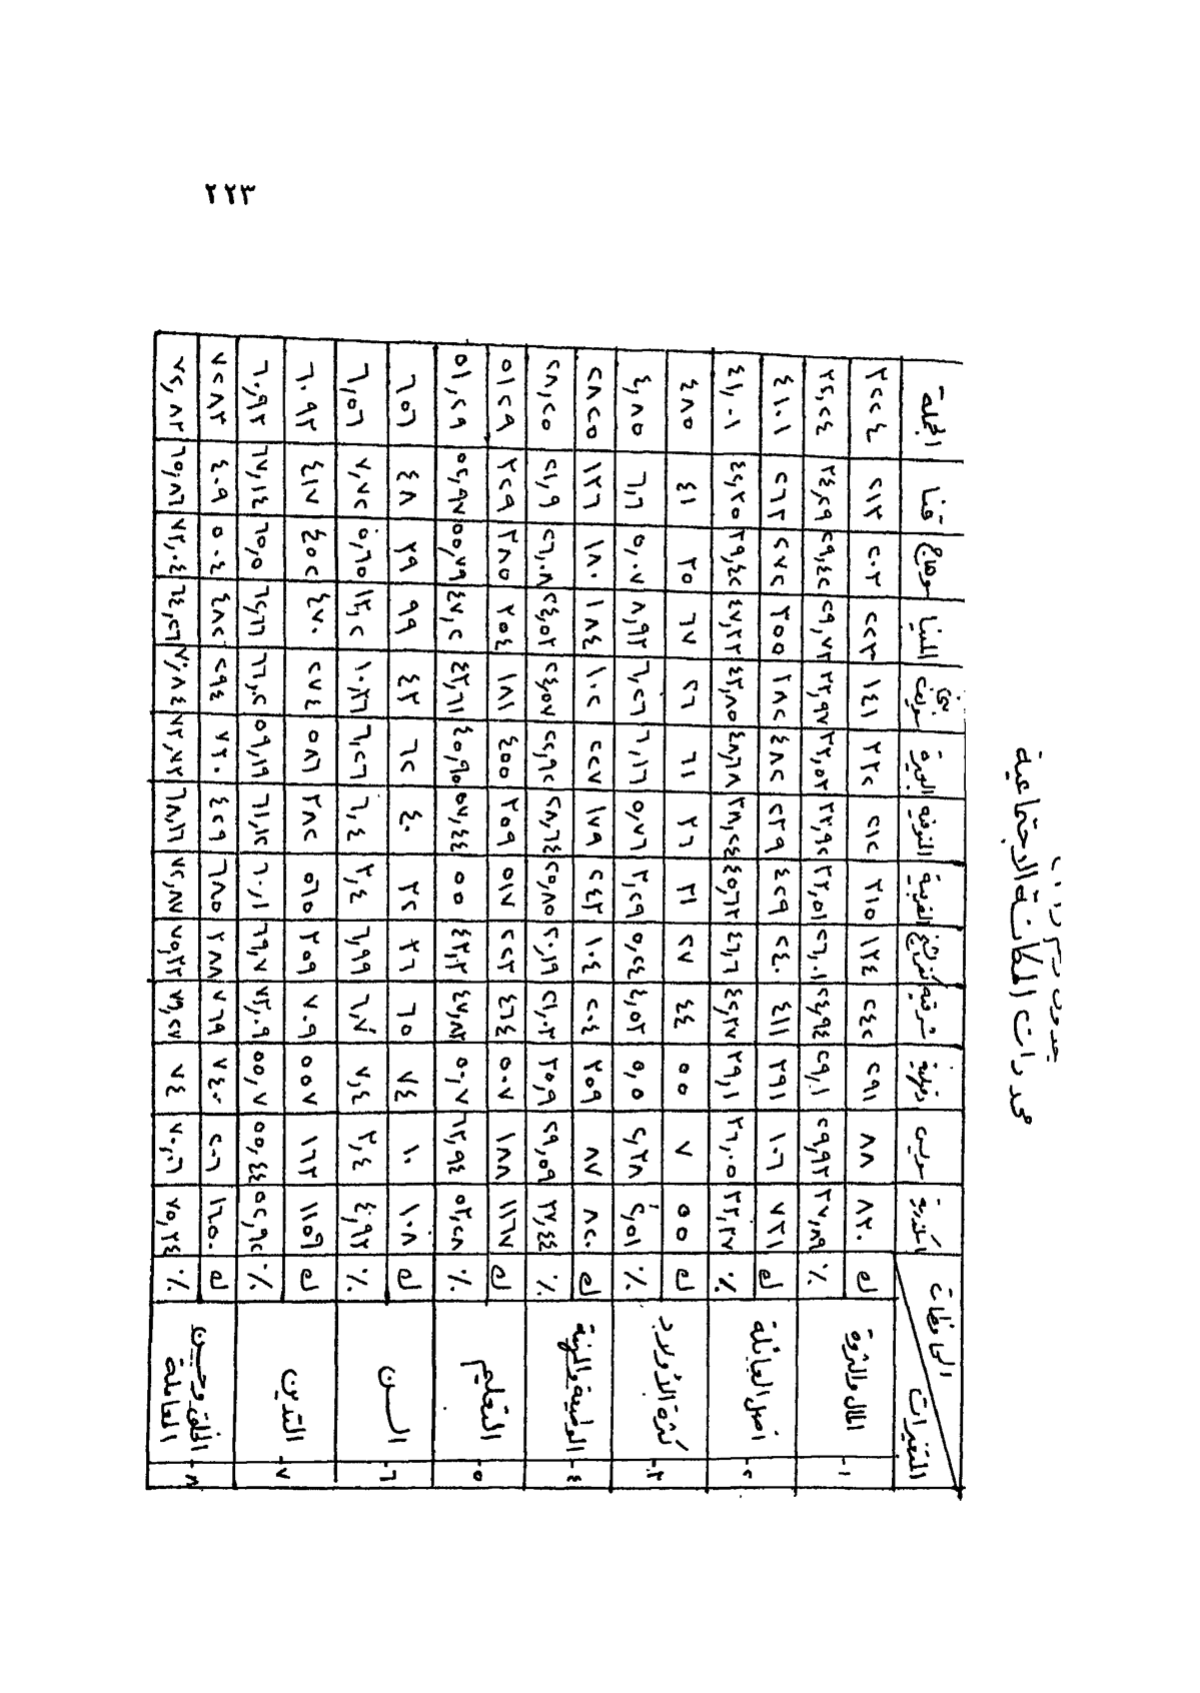 ٢٢٣
محددات المكانة الاجتماعية
المحافظات اسكندرية سويس دقهلية شرقية كفر الشيخ الغربية المنوفية الجيزة بنى سويف المنيا سوهاج قنا الجملة
المتغيرات
١- المال والثروة
ك ٨٣٠ ٨٨ ٢٩١ ٢٤٢ ١٣٤ ٣١٥ ٢١٢ ٣٣٢ ١٤١ ٢٢٣ ٢٠٣ ٢١٣ ٣٢٢٤
٪ ٣٧,٨٩ ٢٩,٩٣ ٢٩,١ ٢٤,٩٤ ٢٦,٠١ ٣٣,٥١ ٣٣,٩٢ ٣٣,٥٣ ٣٣,٩٧ ٢٩,٧٣ ٢٩,٤٢ ٣٤,٢٩ ٣٢,٢٤
٢- اصل العائلة
ك ٧٣١ ١٠٦ ٣٩١ ٤١١ ٢٤٠ ٤٢٩ ٢٣٩ ٤٨٢ ١٨٢ ٣٥٥ ٢٧٢ ٢٦٣ ٤١٠١
٪ ٣٣,٣٧ ٣٦,٠٥ ٣٩,١ ٤٢,٣٧ ٤٦,٦ ٤٥,٦٣ ٣٨,٢٤ ٤٨,٦٨ ٤٣,٨٥ ٤٧,٣٣ ٣٩,٤٢ ٤٢,٣٥ ٤١,٠١
٣- كثرة الأولاد
ك ٥٥ ٧ ٥٥ ٤٤ ٢٧ ٣١ ٣٦ ٦١ ٢٦ ٦٧ ٣٥ ٤١ ٤٨٥
٪ ٢,٥١ ٢,٣٨ ٥,٥ ٤,٥٣ ٥,٢٤ ٣,٢٩ ٥,٧٦ ٦,١٦ ٦,٢٦ ٨,٩٣ ٥,٠٧ ٦,٦ ٤,٨٥
٤- الوظيفة والمهنة
ك ٨٢٠ ٨٧ ٣٥٩ ٢٠٤ ١٠٤ ٢٤٣ ١٧٩ ٢٢٧ ١٠٢ ١٨٤ ١٨٠ ١٣٦ ٢٨٢٥
٪ ٣٧,٤٤ ٢٩,٥٩ ٣٥,٩ ٢١,٠٣ ٢٠,١٩ ٢٥,٨٥ ٢٨,٦٤ ٢٢,٩٢ ٢٤,٥٧ ٢٤,٥٣ ٢٦,٠٨ ٢١,٩ ٢٨,٢٥
٥- التعليم
ك ١١٦٧ ١٨٨ ٥٠٧ ٤٦٤ ٢٢٣ ٥١٧ ٣٥٩ ٤٥٥ ١٨١ ٣٥٤ ٣٨٥ ٣٢٩ ٥١٢٩
٪ ٥٣,٢٨ ٦٣,٩٤ ٥٠,٧ ٤٧,٨٣ ٤٣,٣ ٥٥ ٥٧,٤٤ ٤٥,٩٥ ٤٣,٦١ ٤٧,٢ ٥٥,٧٩ ٥٢,٩٧ ٥١,٢٩
٦- السن
ك ١٠٨ ١٠ ٧٤ ٦٥ ٣٦ ٣٢ ٤٠ ٦٢ ٤٣ ٩٩ ٣٩ ٤٨ ٦٥٦
٪ ٤,٩٣ ٣,٤ ٧,٤ ٦,٧ ٦,٩٩ ٣,٤ ٦,٤ ٦,٢٦ ١٠,٣٦ ١٣,٢ ٥,٦٥ ٧,٧٢ ٦,٥٦
٧- التدين
ك ١١٥٩ ١٦٣ ٥٥٧ ٧٠٩ ٣٥٩ ٥٦٥ ٣٨٢ ٥٨٦ ٢٧٤ ٤٧٠ ٤٥٢ ٤١٧ ٦٠٩٣
٪ ٥٢,٩٢ ٥٥,٤٤ ٥٥,٧ ٧٣,٠٩ ٦٩,٧ ٦٠,١ ٦١,١٢ ٥٩,١٩ ٦٦,٠٢ ٦٢,٦٦ ٦٥,٥ ٦٧,١٤ ٦٠,٩٣
٨- الخلق وحسن المعاملة
ك ١٦٥٠ ٢٠٦ ٧٤٠ ٧٦٩ ٣٨٨ ٦٨٥ ٤٢٩ ٧٣٠ ٢٩٤ ٤٨٢ ٥٠٤ ٤٠٩ ٧٢٨٣
٪ ٧٥,٣٤ ٧٠,٠٦ ٧٤ ٧٩,٢٧ ٧٥,٣٣ ٧٢,٨٧ ٦٨,٦٦ ٧٣,٧٣ ٧٠,٨٤ ٦٤,٢٦ ٧٣,٠٤ ٦٥,٨٦ ٧٢,٨٣